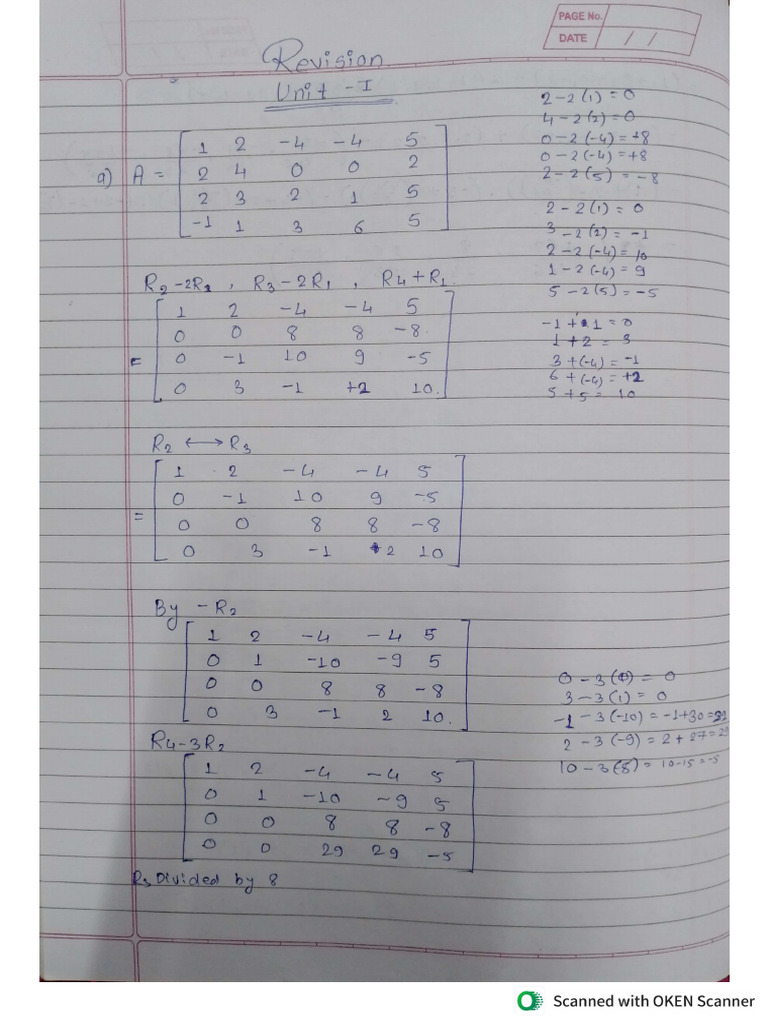 PAGE No.
DATE / /
Revision
Unit - I
a) A =
1 2 -4 -4 5
2 4 0 0 2
2 3 2 1 5
-1 1 3 6 5
2 - 2 (1) = 0
4 - 2 (2) = 0
0 - 2 (-4) = +8
0 - 2 (-4) = +8
2 - 2 (5) = -8
2 - 2 (1) = 0
3 - 2 (2) = -1
2 - 2 (-4) = 10
1 - 2 (-4) = 9
5 - 2 (5) = -5
R2 - 2R1 , R3 - 2R1 , R4 + R1
=
1 2 -4 -4 5
0 0 8 8 -8
0 -1 10 9 -5
0 3 -1 +2 10.
-1 + 1 = 0
1 + 2 = 3
3 + (-4) = -1
6 + (-4) = +2
5 + 5 = 10
R2 ⟷ R3
=
1 2 -4 -4 5
0 -1 10 9 -5
0 0 8 8 -8
0 3 -1 2 10
By - R2
1 2 -4 -4 5
0 1 -10 -9 5
0 0 8 8 -8
0 3 -1 2 10.
0 - 3 (0) = 0
3 - 3 (1) = 0
-1 - 3 (-10) = -1 + 30 = 29
2 - 3 (-9) = 2 + 27 = 29
10 - 3 (5) = 10 - 15 = -5
R4 - 3R2
1 2 -4 -4 5
0 1 -10 -9 5
0 0 8 8 -8
0 0 29 29 -5
R3 Divided by 8
Scanned with OKEN Scanner